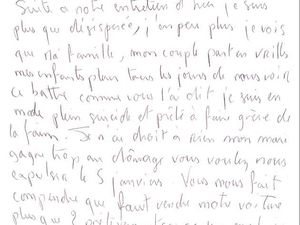 Suite a notre entretien d'hier je suis
plus que désespérée, j'en peu plus je vois
que ma famille, mon couple part en vrilles
mes enfants pleur tous les jours de nous voir
ce battre comme vous l'ai dit je suis en
mode plein suicide et prête à faire grève de
la faim. Je n'ai droit à rien mon mari
gagne trop au chômage vous voulez nous
expulser le 5 janvier. Vous nous fait
comprendre que faut vendre notre voiture
plus que 2